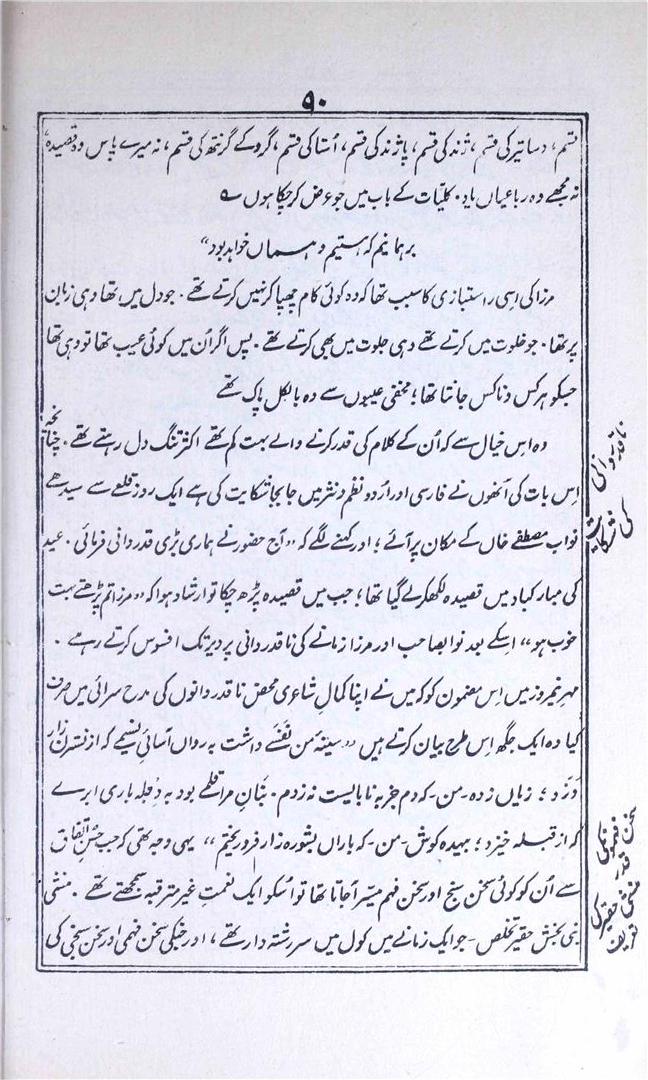 ۹۰
قسم، دساتیر کی قسم، ژند کی قسم، پاژند کی قسم، اُستا کی قسم، گرو کے گرنتھ کی قسم، نہ میرے پاس وہ قصیدہ،
نہ مجھے وہ رباعیاں یاد۔ کلیات کے باب میں جو عرض کر چکا ہوں ؎
برہمانیم کہ ہستیم و ہمساں خواہد بود“
مرزا کی اِسی راستبازی کا سبب تھا کہ وہ کوئی کام چھپا کر نہیں کرتے تھے۔ جو دل میں تھا وہی زبان
پر تھا۔ جو خلوت میں کرتے تھے وہی جلوت میں بھی کرتے تھے۔ پس اگر اُن میں کوئی عیب تھا تو وہی تھا
جسکو ہر کس و ناکس جانتا تھا؛ مخفی عیبوں سے وہ بالکل پاک تھے
وہ اِس خیال سے کہ اُن کے کلام کی قدر کرنے والے بہت کم تھے اکثر تنگ دل رہتے تھے۔ چنانچہ
اِس بات کی اُنھوں نے فارسی اور اُردو نظم و نثر میں جابجا شکایت کی ہے ایک روز قلعے سے سیدھے
نواب مصطفےٰ خاں کے مکان پر آئے؛ اور کہنے لگے کہ ”آج حضور نے ہماری بڑی قدردانی فرمائی۔ عید
کی مبارکباد میں قصیدہ لکھکر لے گیا تھا؛ جب میں قصیدہ پڑھ چکا تو ارشاد ہوا کہ ”مرزا تم پڑھتے بہت
خوب ہو“ اِسکے بعد نوابصاحب اور مرزا زمانے کی ناقدردانی پر دیر تک افسوس کرتے رہے۔
مہر نیمروز میں اِس مضمون کو کہ میں نے اپنا کمالِ شاعری محض ناقدردانوں کی مدح سرائی میں صرف
کیا وہ ایک جگہ اِس طرح بیان کرتے ہیں ”سینۂ من نَفَسے داشت بہ رواں آسائیِ نسیمے کہ از نسترن زار
وَزَد؛ زیاں زدہ۔من۔کہ دم جز بہ نابایست نہ زدم۔ بنانِ مرا قلمے بود بہ دجلہ باریِ ابرے
کہ از قبلہ خیزد؛ بیہدہ کوش۔من۔کہ باراں بشورہ زار فرو ریختم“ یہی وجہ تھی کہ جب حسنِ اتفاق
سے اُن کو کوئی سخن سنج اور سخن فہم میسر آجاتا تھا تو اُسکو ایک نعمتِ غیر مترقبہ سمجھتے تھے۔ منشی
نبی بخش حقیر تخلص۔جو ایک زمانے میں کول میں سررشتہ دار تھے، اور جنکی سخن فہمی اور سخن سنجی کی
ناقدردانی
کی شکایت
سخن فہموں کی
قدر
منشی حقیر کی
تعریف